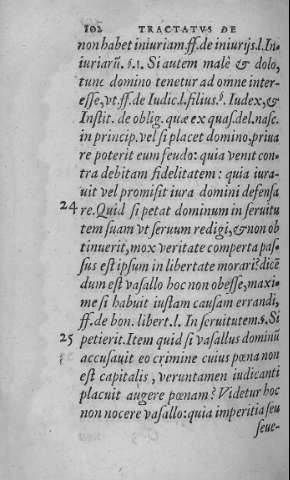 102 TRACTATVS DE
non habet iniuriam.ff.de iniurijs.l.In-
iuriarũ. §.1. Si autem malè & dolo,
tunc domino tenetur ad omne inter-
esse, vt.ff.de Iudic.l.filius.§. Iudex,&
Instit. de oblig. quæ ex quas.del.nasc.
in princip. vel si placet domino.priua
re poterit eum feudo: quia venit con-
tra debitam fidelitatem : quia iura-
uit vel promisit iura domini defensa
24 re. Quid si petat dominum in seruitu
tem suam vt seruum redigi, & non ob
tinuerit, mox veritate comperta pas-
sus est ipsum in libertate morari? dicẽ
dum est vasallo hoc non obesse, maxi-
me si habuit iustam causam errandi,
ff. de bon. libert.l. In seruitutem.§. Si
25 petierit. Item quid si vasallus dominũ
accusauit eo crimine cuius pœna non
est capitalis, veruntamen iudicanti
placuit augere pœnam? Videtur hoc
non nocere vasallo: quia imperitia seu
seue-